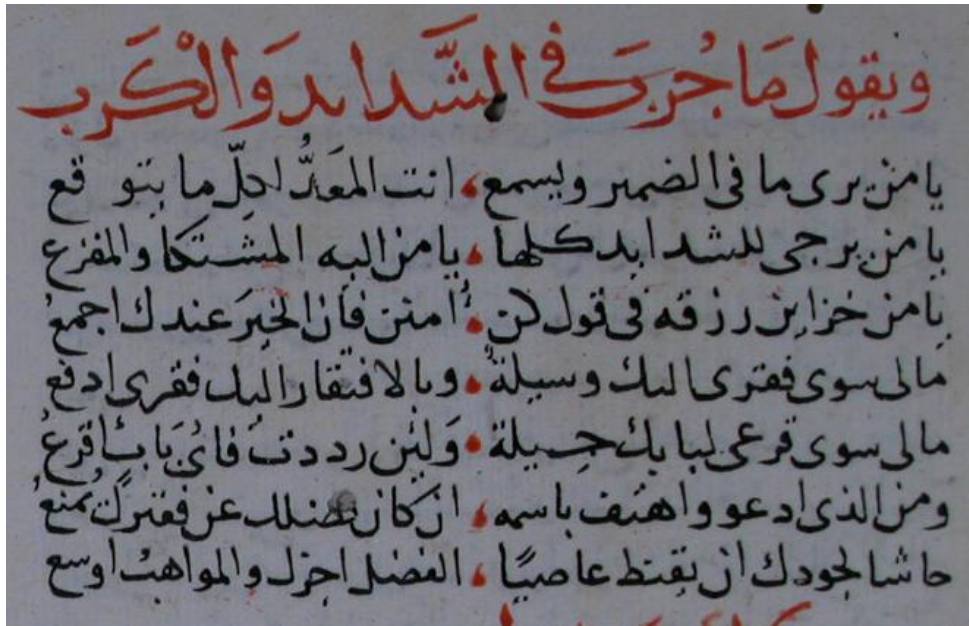 ويقول ما جرب في الشدايد والكرب
يا من يرى ما فى الضمير ويسمع ، انت المعدُّ لكلّ ما يتوقع
يا من يرجى للشدايد كلها ، يا من اليه المشتكا والمفزع
يا من خزاين رزقه فى قول كن ، اُمنن فان الخيرَ عندك اجمعُ
مالى سوى فقرى اليك وسيلةٌ ، وبالافتقار اليك فقرى ادفعُ
مالى سوى قرعى لبابك حيلة ، وَلئِن رددتُ فائَ بَابٍ اقرعُ
ومن الذى ادعو واهتف باسمه ، ان كان فضلك عن فقيرك يُمنعُ
حاشا لجودك ان يقنط عاصيًا ، الفضل اجزل والمواهبُ اوسع